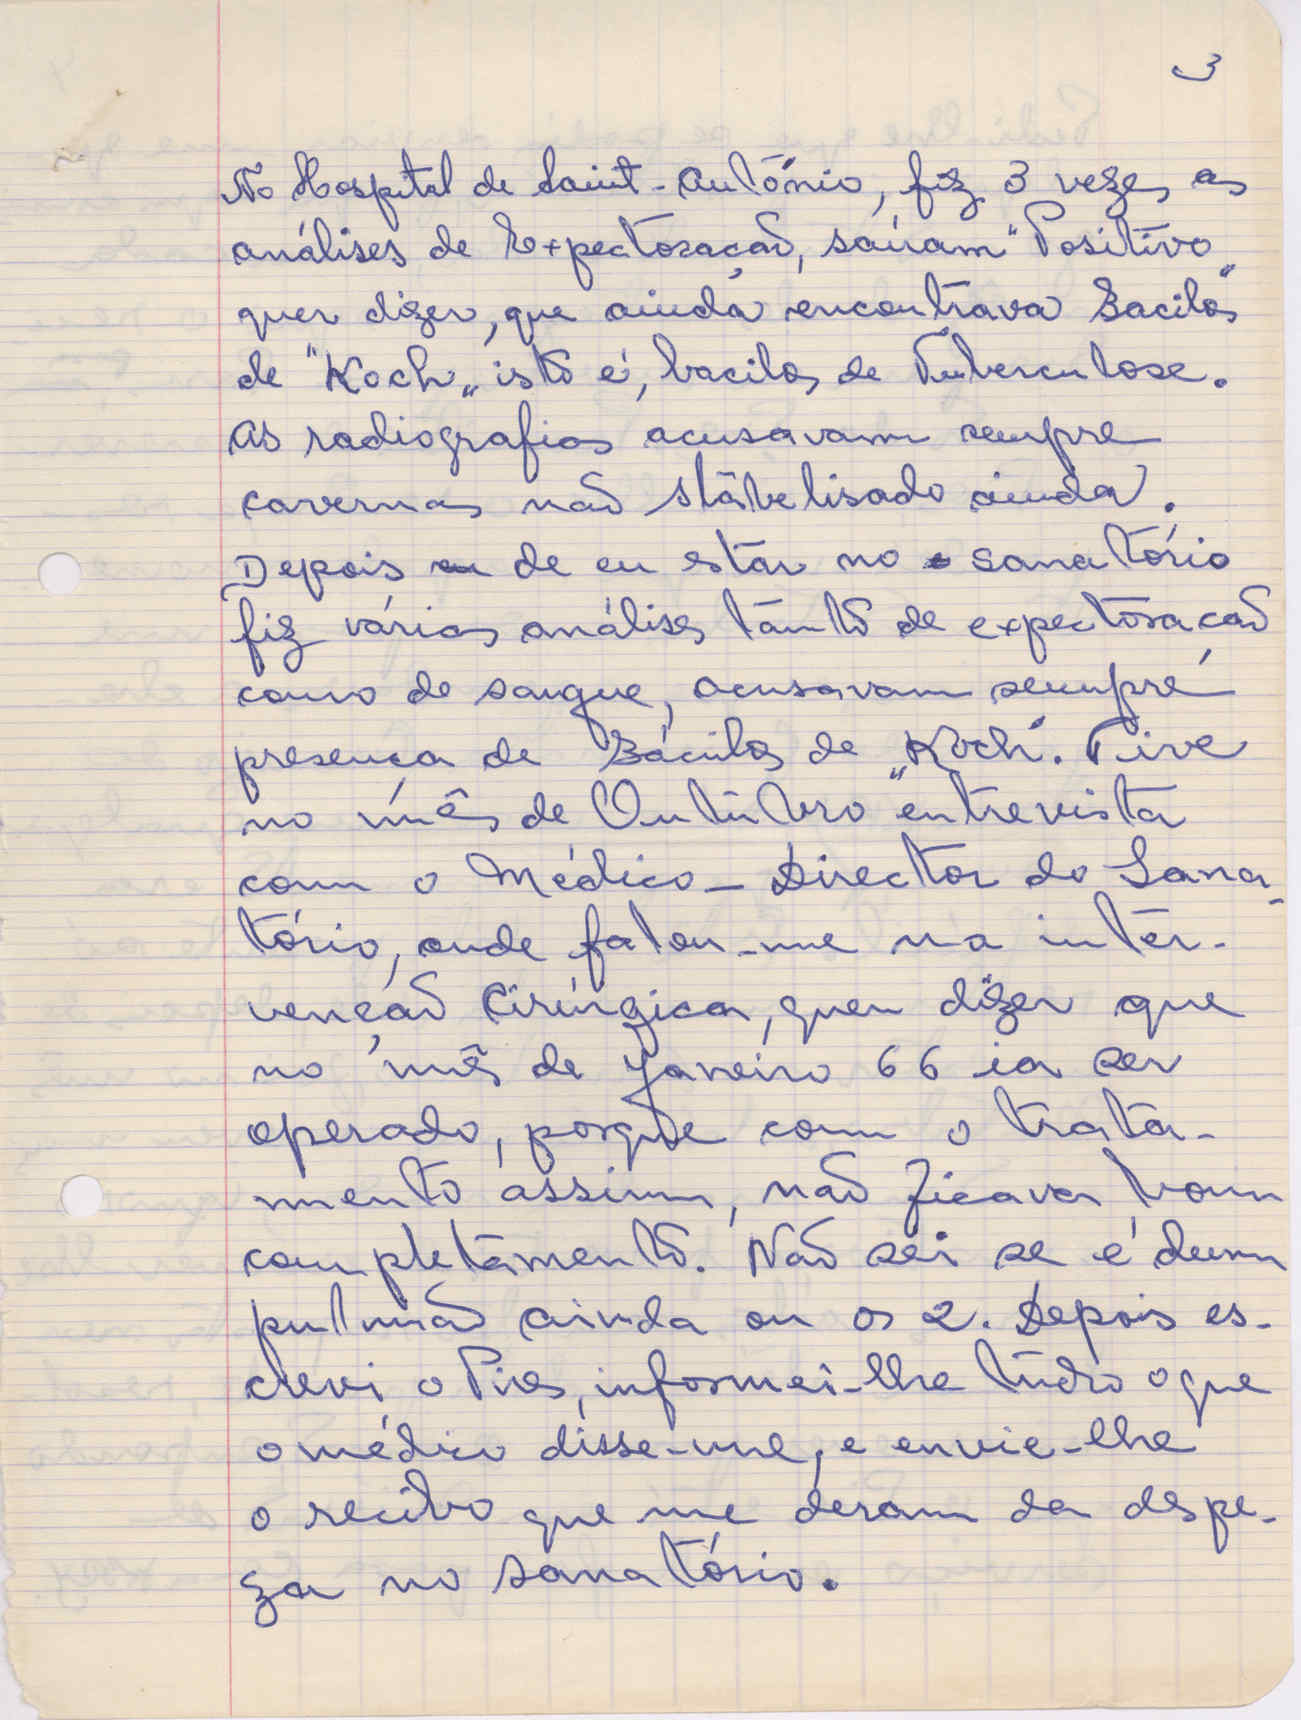 3
No Hospital de Saint-António, fiz 3 vezes as
análises de Expectoração, saíram "Positivo"
quer dizer, que ainda encontrava Bacilos
de "Koch" isto é, bacilos de Tuberculose.
As radiografias acusavam sempre
cavernas não stábelisado ainda.
Depois de eu estar no sanatório
fiz várias análises tanto de expectoração
como de sangue, acusavam sempre
presença de Bácilos de "Koch". Tive
no mês de Outubro entrevista
com o Médico-Director do Sana-
tório, onde falou-me na inter-
venção Cirúrgica, quer dizer que
no mês de Janeiro 66 ia ser
operado, porque com o trata-
mento assim, não ficava bom
completamento. Não sei se é dum
pulmão ainda ou os 2. Depois es-
crevi o Pires, informei-lhe tudo o que
o médico disse-me, e envie-lhe
o recibo que me deram da despe-
za no sanatório.